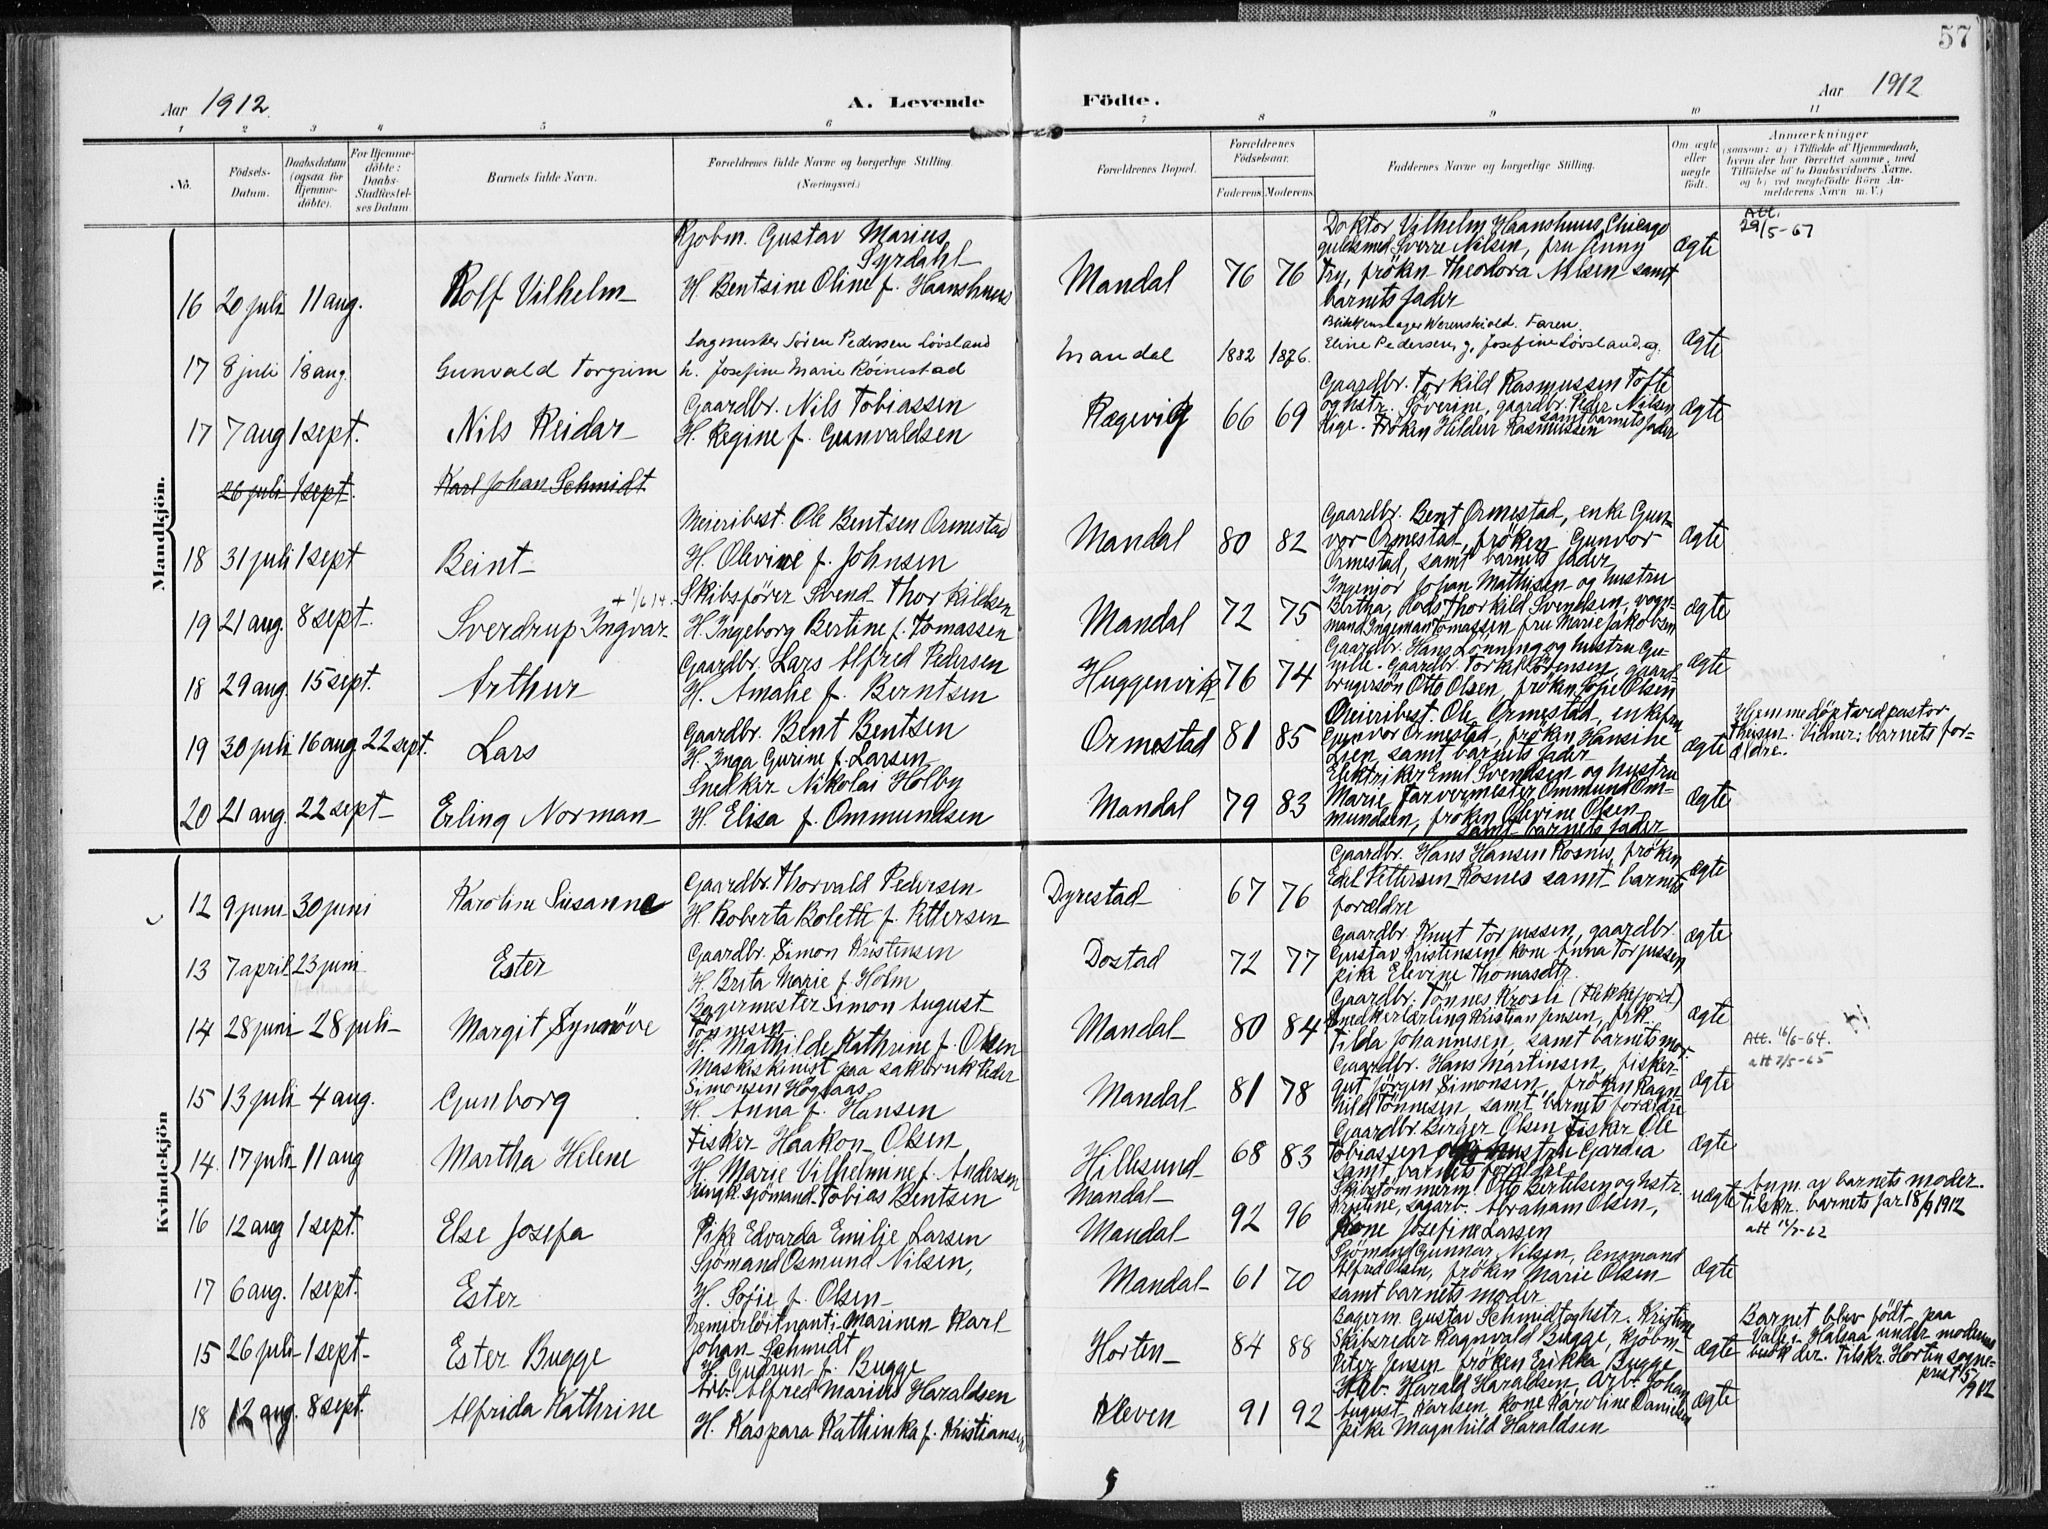 57
Aar 1912.
A. Levende Födte.
Aar 1912
1 2 3 4 5 6 7 8 9 10 11
No.
Födsels-Datum.
Daabsdatum (ogsaa for Hjemme-döbte).
For Hjemme-döbte: Daabs-Stadfæstel-ses Datum.
Barnets fulde Navn.
Forældrenes fulde Navne og borgerlige Stilling. (Næringsvei.)
Forældrenes Bopæl.
Forældrenes Födselsaar.
Faderens. Moderens.
Faddernes Navne og borgerlige Stilling.
Om ægte eller uægte födt.
Anmærkninger
(saasom: a) i Tilfælde af Hjemmedaab,
hvem der har forrettet samme, med
Tilföielse af to Daabsvidners Navne.
og b) ved uægtefödte Börn An-
melderens Navn m. V.)
Mandkjön.
16 20 juli 11 aug. Rolf Vilhelm
Kjöbm. Gustav Marius
Tyrdahl
H. Bentsine Oline f. Haanshuus
Mandal 76 76
Doktor Vilhelm Haanshuus, Chicago
guldsmed Sverre Nilsen, fru Anny
Try, fröken Theodora Nilsen samt
barnets fader
ægte
Att.
29/5-67
17 8 juli 18 aug. Gunvald Torgrim
Sagmester Sören Pedersen Lövsland
h. Josefine Marie Röinestad
Mandal 1882 1876.
Blikkenslager Werenskiold. Faren.
Eline Pedersen, g. Josefine Lövsland, g.
ægte
17 7 aug 1 sept. Nils Reidar
Gaardbr. Nils Tobiassen
H. Regine f. Gunvaldsen
Rægevig 66 69
Gaardbr. Torkild Rasmussen Tofte
og hstr. Söverine, gaardbr. Peder Nilsen
Rige. Fröken Hilder Rasmussen samt barnets fader
ægte
26 juli 1 sept. Karl Johan Schmidt
18 31 juli 1 sept Beint
Meieribest. Ole Bentsen Ormestad
H. Olevine f. Johnsen
Mandal 80 82
Gaardbr. Bent Ormestad, enke Gun-
vor Ormestad, fröken Gunvor
Ormestad, samt barnets fader
ægte
19 21 aug. 8 sept. Sverdrup Ingvar
+ 1/6 14.
Skibsförer Svend Thorkildsen
H. Ingeborg Bertine f. Tomassen
Mandal 72 75
Ingeniör Johan Mathisen og hustru
Bertha, Mads Thorkild Svendsen, vogn-
mand Ingeman Tomassen, fru Marie Jakobsen
ægte
18 29 aug. 15 sept. Arthur
Gaardbr. Lars Alfred Pedersen
H. Amalie f. Berntsen
Huggenvik 76 74
Gaardbr. Hans Lönning og hustru Gu-
nille. Gaardbr. Torkil Sörensen, gaard-
brugersön Otto Olsen, fröken Sofie Olsen
ægte
19 30 juli 16 aug. 22 sept. Lars
Gaardbr. Bent Bentsen
H. Inga Gurine f. Larsen
Ormestad 81 85
Meieribest. Ole Ormestad, enkefru
Gunvor Ormestad, fröken Hansine
Lien samt barnets fader
ægte
Hjemmedöpt ved pastor
Theisen. Vidner: barnets for-
ældre.
20 21 aug. 22 sept Erling Norman
Snedker Nikolai Holby
H. Elisa f. Ommundsen
Mandal 79 83
Elektriker Emil Svendsen og hustru
Marie, farvermester Ommund Om-
mundsen, fröken Olevine Olsen
samt barnets fader
ægte
Kvindekjön
12 9 juni 30 juni Karoline Susanne
Gaardbr. Thorvald Pedersen
H Roberta Bolette f. Pettersen
Dyrestad 67 76
Gaardbr. Hans Hansen Rosnes, fröken
Edel Pettersen Rosnes samt barnets
forældre
ægte
13 7 april 23 juni Ester
Gaardbr. Simon Kristensen
H. Brita Marie f. Holm
Dostad 72 77
Gaardbr. Knut Torjussen, gaardbr.
Gustav Kristensen, kone Anna Torjussen
pike Elevine Thomasdtr.
ægte
14 28 juni 28 juli Margit Synnöve
Bagermester Simon August
Tönnesen
H. Mathilde Kathrine f. Olsen
Mandal 80 84
Gaardbr. Tönnes Krosli (Flekkefjord)
Snedkerlærling Kristian Jensen, frk.
Tilda Johannesen, samt barnets mor.
ægte
Att. 16/6-64.
att 7/5-65
15 13 juli 4 aug. Gunborg
Maskinist paa sakbruk Peder
Simonsen Högsaas
H. Anna f. Hansen
Mandal 81 78
Gaardbr. Hans Martinsen, fisker-
gut Jörgen Simonsen, fröken Ragn-
hild Tönnesen, samt barnets forældre
ægte
14 17 juli 11 aug Martha Helene
Fisker Haakon Olsen
H. Marie Vilhelmine f. Andersen
Hillesund 68 83
Gaardbr. Birger Olsen, fisker Ole
Tobiassen og hustru Gardea
samt barnets forældre
ægte
16 12 aug 1 sept. Else Josefa
Ungk. sjömand Tobias Bentsen
Pike Edvarda Emilie Larsen
Mandal
Mandal 92 96
Skibstömmerm. Otto Bertelsen og hstr.
Kristine, sagarb. Abraham Olsen,
Kone Josefine Larsen
uægte
Anm. av barnets moder.
Tilskr. barnets far 18/9 1912
att 12/7-62
17 6 aug. 1 sept. Ester
Sjömand Osmund Nilsen,
H. Sofie f. Olsen
Mandal 61 70
Sjömand Gunnar Nilsen, lensmand
Alfred Olsen, fröken Marie Olsen
samt barnets moder
ægte
15 26 juli 1 sept Ester Bugge
Premierlöitnant i Marinen Karl
Johan Schmidt
H Gudrun f. Bugge
Horten 84 88
Bagerm. Gustav Schmidt og hstr. Kristine
Skibsreder Ragnvald Bugge, kjöbm.
Peter Jensen fröken Erikka Bugge
ægte
Barnet blev födt paa
Valle i Halsaa under moderens
besök der. Tilskr. Horten sogne-
prest 5/9 1912
18 12 aug. 8 sept. Alfrida Kathrine
Arb. Alfred Marius Haraldsen
H. Kaspara Kathinka f. Kristiansen
Kleven 91 92
Arb. Harald Haraldsen, arb. Johan
August Karlsen, kone Karoline Danielsen
pike Magnhild Haraldsen
ægte